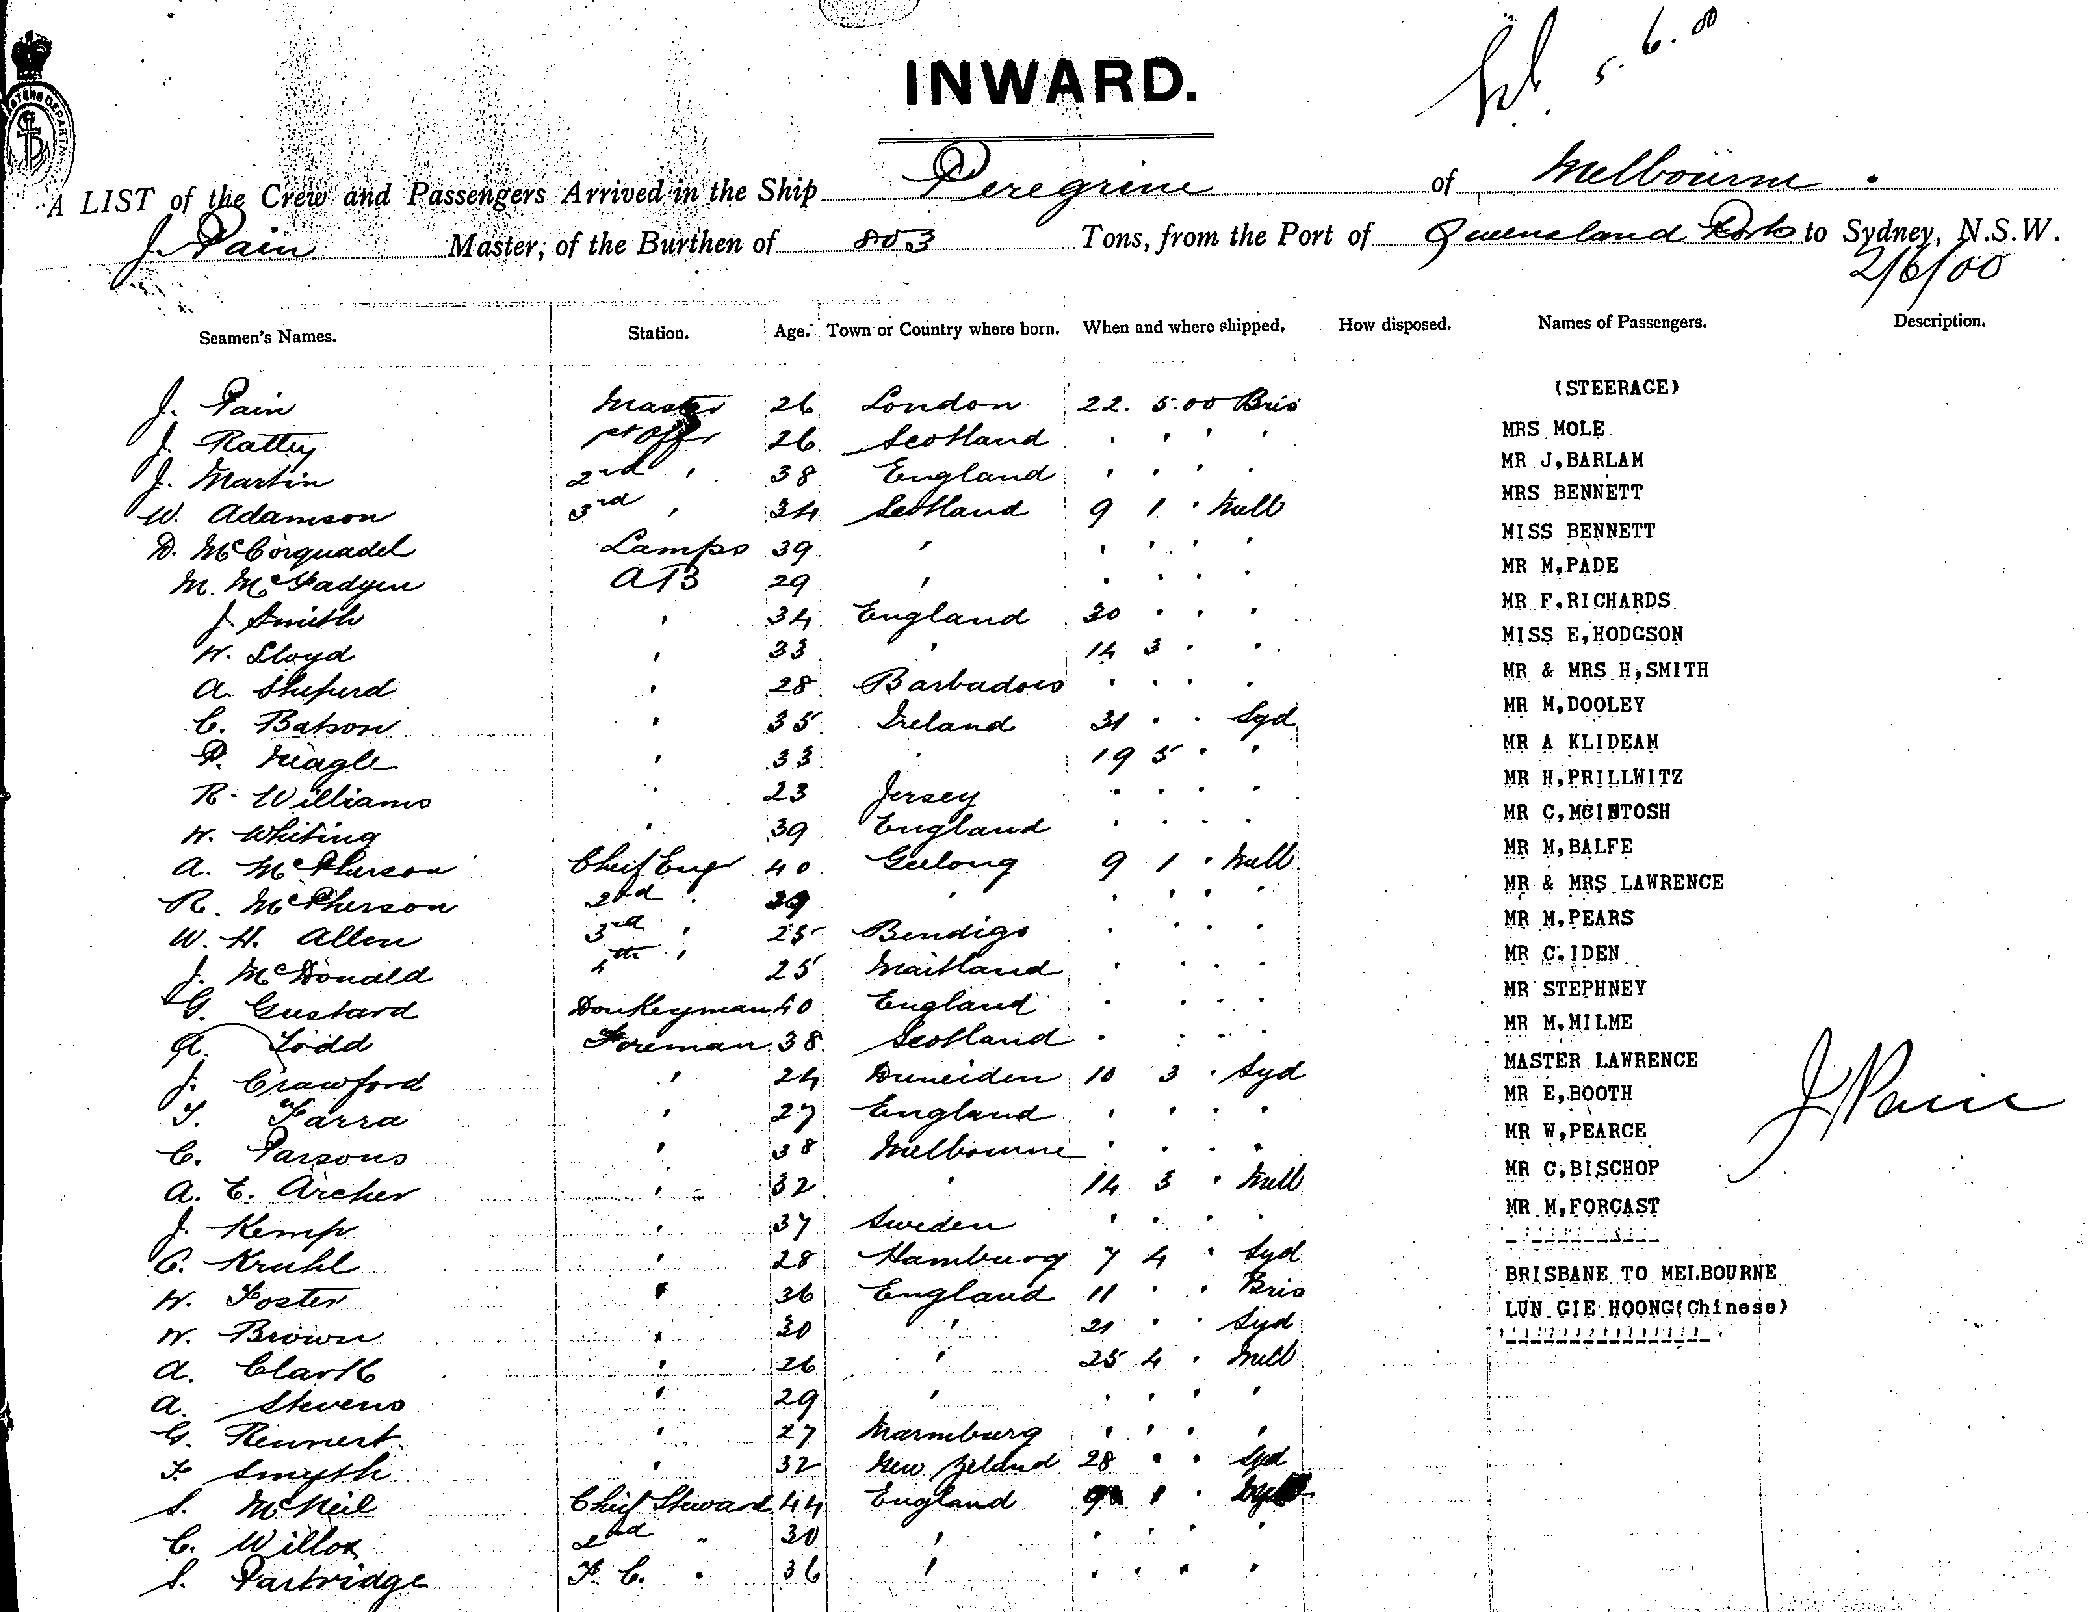 INWARD.
5.6.00
A LIST of the Crew and Passengers Arrived in the Ship Peregrine of Melbourne.
J. Pain Master, of the Burthen of 803 Tons, from the Port of Queensland Ports to Sydney, N.S.W.
2/6/00
Seamen's Names. Station. Age. Town or Country where born. When and where shipped. How disposed. Names of Passengers. Description.
J. Pain Master 26 London 22. 5.00 Bris
J. Rattey 1st Offr 26 Scotland " " " "
J. Martin 2nd " 38 England " " " "
W. Adamson 3rd " 34 Scotland 9 1 " Mell
D. McCorquadel Lamps 39 " " " " "
M. McFadyen AB 29 " " " " "
J. Smith " 34 England 30 " " "
W. Lloyd " 33 " 14 3 " "
A. Sheperd " 28 Barbadoes " " " "
C. Batson " 35 Ireland 31 " " Syd
P. Neagle " 33 " 19 5 " "
R. Williams " 23 Jersey " " " "
W. Whiting " 39 England " " " "
A. McPherson Chief Engr 40 Geelong 9 1 " Mell
R. McPherson 2nd " 39 " " " " "
W. H. Allen 3rd " 25 Bendigo " " " "
J. McDonald 4th " 25 Maitland " " " "
G. Gustard Donkeyman 40 England " " " "
A. Todd Foreman 38 Scotland " " " "
J. Crawford " 24 Duneiden 10 3 " Syd
T. Farra " 27 England " " " "
C. Parsons " 38 Melbourne " " " "
A. E. Archer " 32 " 14 3 " Mell
J. Kemp " 37 Sweden " " " "
C. Kruhl " 28 Hamburg 7 4 " Syd
W. Foster " 36 England 11 " " Bris
W. Brown " 30 " 21 " " Syd
A. Clark " 26 " 25 4 " Mell
A. Stevens " 29 " " " " "
G. Rennert " 27 Harmburg " " " "
F Smyth " 32 New Zeland 28 " " Syd
S. McNeil Chief Steward 44 England 9 1 "
C. Willox 2nd " 30 " " " " "
S. Partridge F. C. " 36 " " " " "
(STEERAGE)
MRS MOLE
MR J,BARLAM
MRS BENNETT
MISS BENNETT
MR M,PADE
MR F.RICHARDS
MISS E,HODGSON
MR & MRS H,SMITH
MR M,DOOLEY
MR A KLIDEAM
MR H,PRILLWITZ
MR C,MCINTOSH
MR M,BALFE
MR & MRS LAWRENCE
MR M,PEARS
MR C.IDEN
MR STEPHNEY
MR M,MILME
MASTER LAWRENCE
MR E,BOOTH
MR W,PEARCE
MR C,BISCHOP
MR M,FORCAST
BRISBANE TO MELBOURNE
LUN GIE HOONG(Chinese)
J. Pain